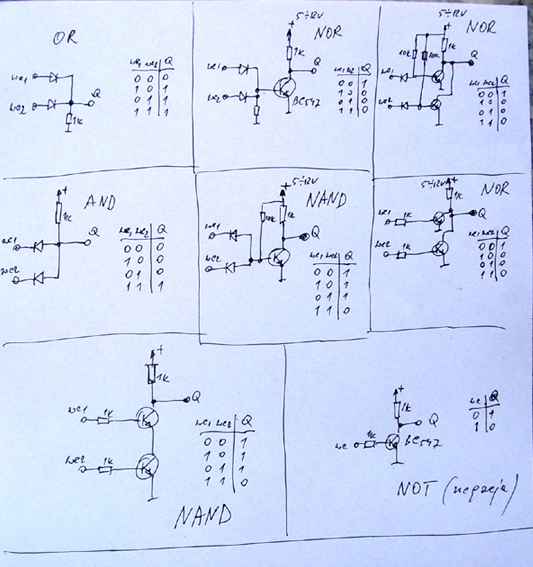 OR
we1 we2 Q
0 0 0
1 0 1
0 1 1
1 1 1
we1
we2
Q
1k
5÷12V
NOR
1k
Q
we1
we2
BC547
we1 we2 Q
0 0 1
1 0 0
0 1 0
1 1 0
5÷12V
NOR
10k 10k 1k
Q
we1
we2
we1 we2 Q
0 0 1
1 0 0
0 1 0
1 1 0
+
AND
1k
Q
we1
we2
we1 we2 Q
0 0 0
1 0 0
0 1 0
1 1 1
5÷12V
NAND
10k 1k
Q
we1
we2
we1 we2 Q
0 0 1
1 0 1
0 1 1
1 1 0
5÷12V
NOR
1k
Q
we1 1k
we2 1k
we1 we2 Q
0 0 1
1 0 0
0 1 0
1 1 0
+
1k
Q
we1 1k
we2 1k
we1 we2 Q
0 0 1
1 0 1
0 1 1
1 1 0
NAND
+
1k
Q
we 1k
BC547
we Q
0 1
1 0
NOT (negacja)